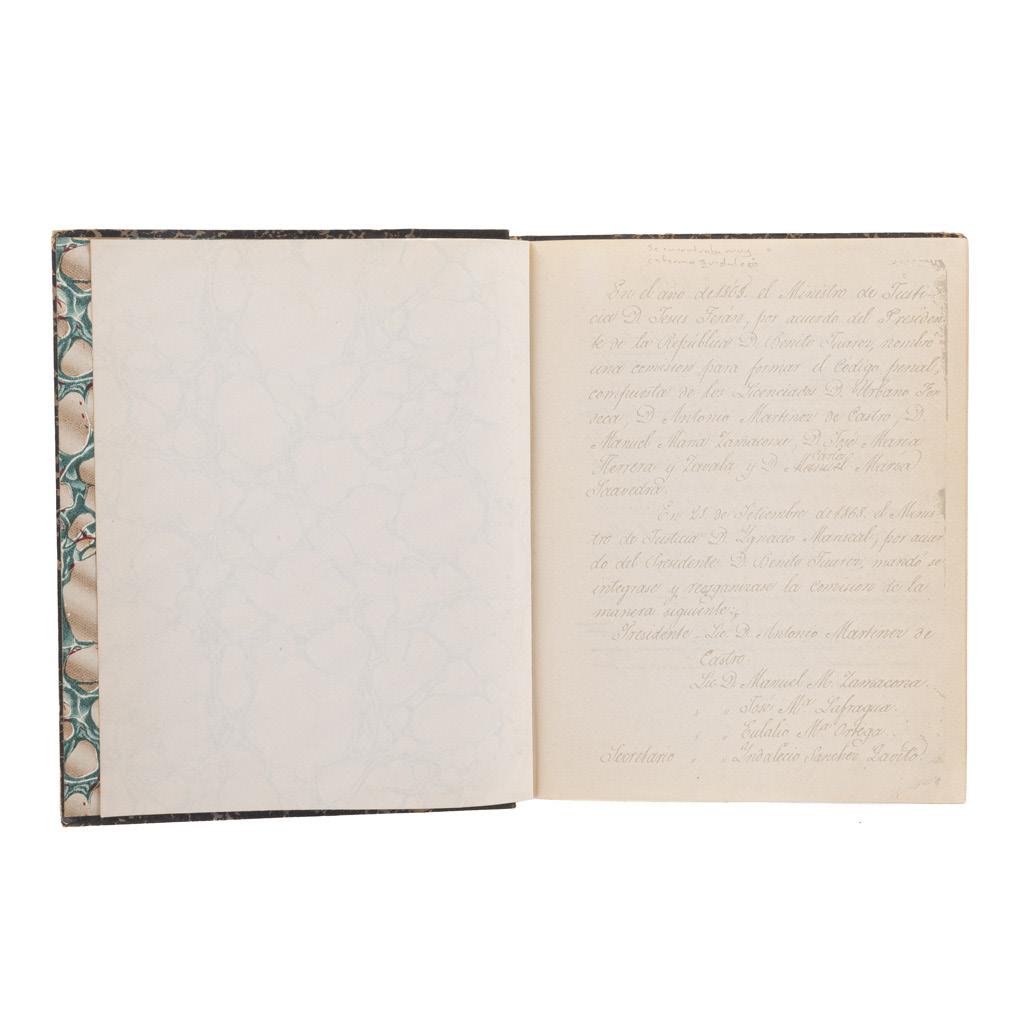 Se encontraba muy
enfermo
En el año de 1868. el Ministro de Justi-
cia D. Jesus Teran, por acuerdo del Presiden
te de la República D. Benito Juarez, nombró
una comision para formar el Codigo penal,
compuesta de los Licenciados D. Urbano Fon
seca, D. Antonio Martinez de Castro, D.
Manuel Maria Zamacona, D. José Maria
Herrera y Zavala y D. Manuel Maria
Carlos
Saavedra.
En 28. de Setiembre de 1868. el Minis
tro de Justicia D. Ygnacio Mariscal, por acuer
do del Presidente D. Benito Juarez, mandó se
integrase y reorganizase la comision de la
manera siguiente:
Presidente - Lic. D. Antonio Martinez de
Castro.
Lic. D. Manuel M. Zamacona.
" " José Mª Lafragua.
" " Eulalio Mª Ortega.
Secretario " " Yndalecio Sanchez Gavito.